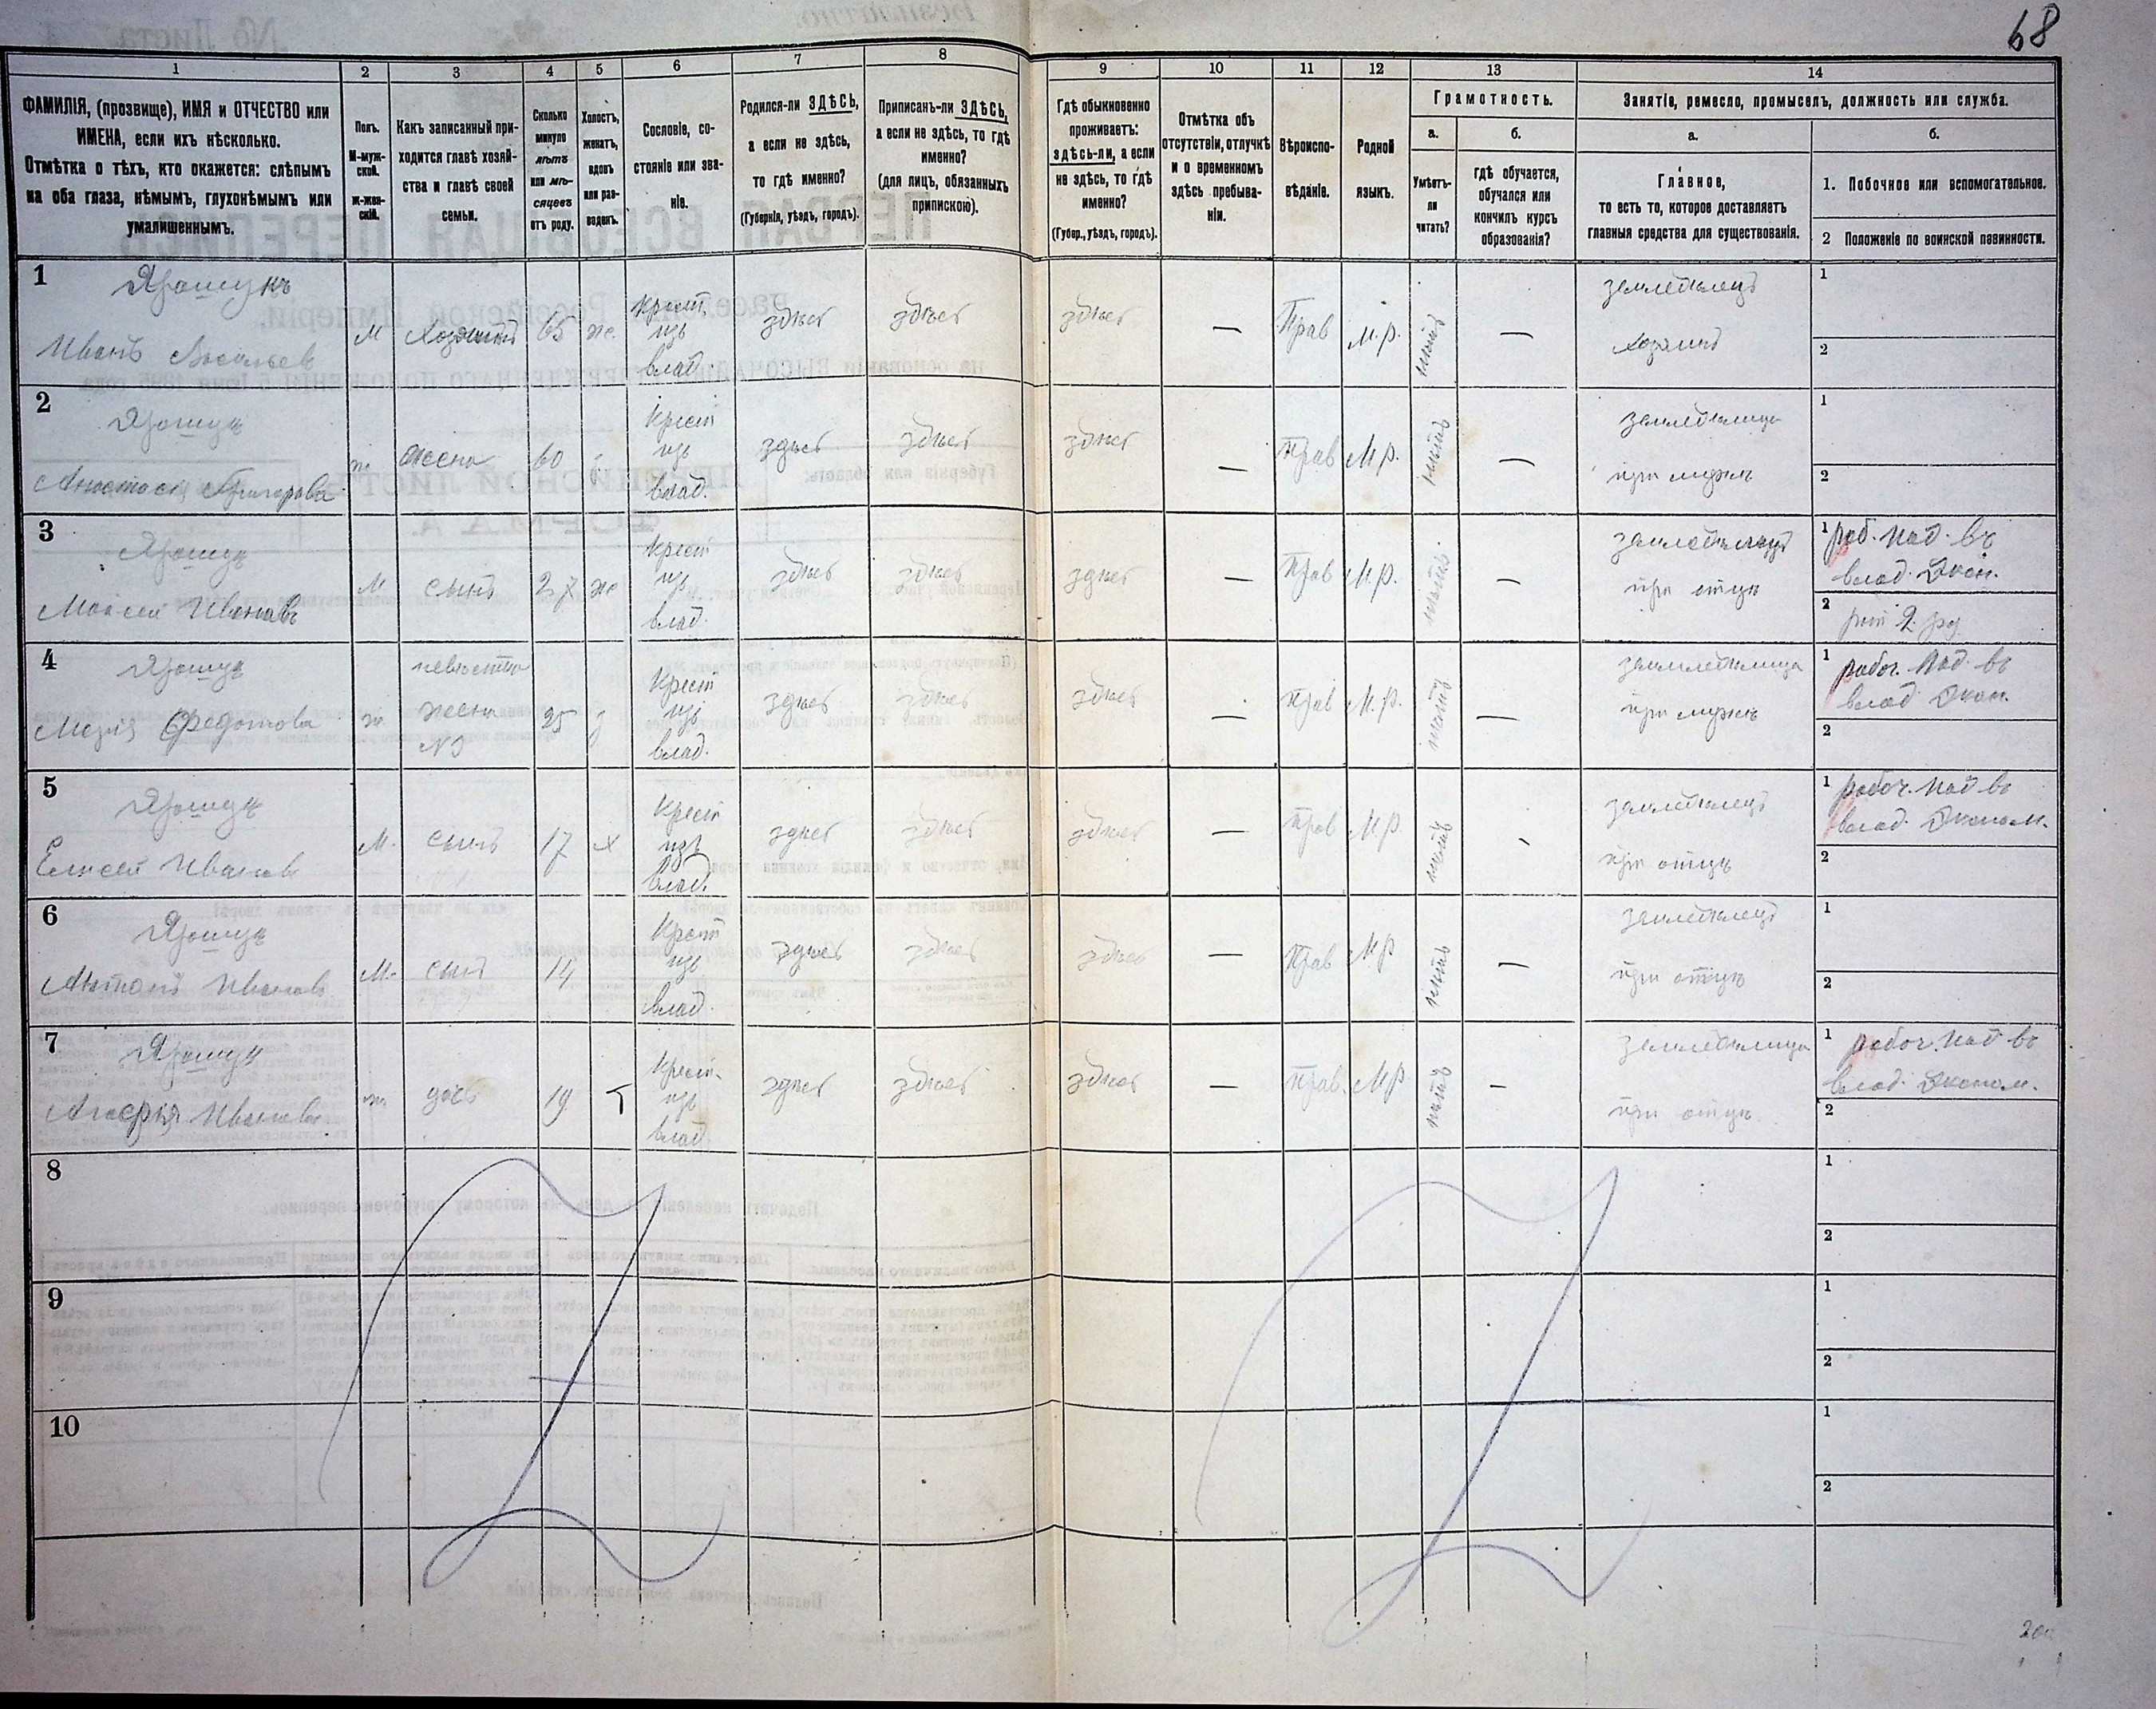 68
1 2 3 4 5 6 7 8 9 10 11 12 13 14
ФАМИЛІЯ, (прозвище), ИМЯ и ОТЧЕСТВО или
ИМЕНА, если ихъ нѣсколько.
Отмѣтка о тѣхъ, кто окажется: слѣпымъ
на оба глаза, нѣмымъ, глухонѣмымъ или
умалишеннымъ.
Полъ.
М-муж-
ской.
ж-жен-
скій.
Какъ записанный при-
ходится главѣ хозяй-
ства и главѣ своей
семьи.
Сколько
минуло
лѣтъ
или мѣ-
сяцевъ
отъ роду.
Холостъ,
женатъ,
вдовъ
или раз-
веденъ.
Сословіе, со-
стояніе или зва-
ніе.
Родился-ли ЗДѢСЬ,
а если не здѣсь,
то гдѣ именно?
(Губернія, уѣздъ, городъ).
Приписанъ-ли ЗДѢСЬ,
а если не здѣсь, то гдѣ
именно?
(для лицъ, обязанныхъ
припискою).
Гдѣ обыкновенно
проживаетъ:
здѣсь-ли, а если
не здѣсь, то гдѣ
именно?
(Губер., уѣздъ, городъ).
Отмѣтка объ
отсутствіи, отлучкѣ
и о временномъ
здѣсь пребыва-
ніи.
Вѣроиспо-
вѣданіе.
Родной
языкъ.
Грамотность.
а.
Умѣетъ-
ли
читать?
б.
гдѣ обучается,
обучался или
кончилъ курсъ
образованія?
Занятіе, ремесло, промыселъ, должность или служба.
а.
Главное,
то есть то, которое доставляетъ
главныя средства для существованія.
б.
1. Побочное или вспомогательное.
2 Положеніе по воинской повинности.
1
Ярощукъ
Иванъ Васильевъ
М
Хозяинъ
65
же.
Крест.
изъ
влад.
здѣсь
здѣсь
здѣсь
—
Прав
М.р.
нѣтъ
—
земледѣлецъ
хозяинъ
1
2
2
Ярощукъ
Анастасія Григорова
ж
жена
60
Крест
изъ
влад.
здѣсь
здѣсь
здѣсь
—
Прав
М.р.
нѣтъ
—
земледѣлица
при мужѣ
1
2
3
Ярощукъ
Моисей Ивановъ
М
сынъ
27
же
Крест
изъ
влад.
здѣсь
здѣсь
здѣсь
—
Прав
М.р.
нѣтъ
—
земледѣлецъ
при отцѣ
1 раб. под. въ
влад. Экон.
2 рат 2. рз
4
Ярощукъ
Марія Федотова
ж
невѣстка
жена
№3
25
Крест
изъ
влад.
здѣсь
здѣсь
здѣсь
—
Прав
М.р.
нѣтъ
—
земледѣлица
при мужѣ
1 рабоч. под. въ
влад. Экон.
2
5
Ярощукъ
Елисей Ивановъ
М.
сынъ
17
х
Крест
изъ
влад.
здѣсь
здѣсь
здѣсь
—
Прав
М.р.
нѣтъ
земледѣлецъ
при отцѣ
1 рабоч. под въ
влад. Эконом.
2
6
Ярощукъ
Антоній Ивановъ
М.
сынъ
14
Крест
изъ
влад.
здѣсь
здѣсь
здѣсь
—
Прав
М.р
нѣтъ
—
земледѣлецъ
при отцѣ
1
2
7
Ярощукъ
Ивановъ
ж
дочь
19
Крест.
изъ
влад
здѣсь
здѣсь
здѣсь
—
Прав.
М.р
нѣтъ
—
земледѣлица
при отцѣ
1 рабоч. под въ
влад. Эконом.
2
8
1
2
9
1
2
10
1
2